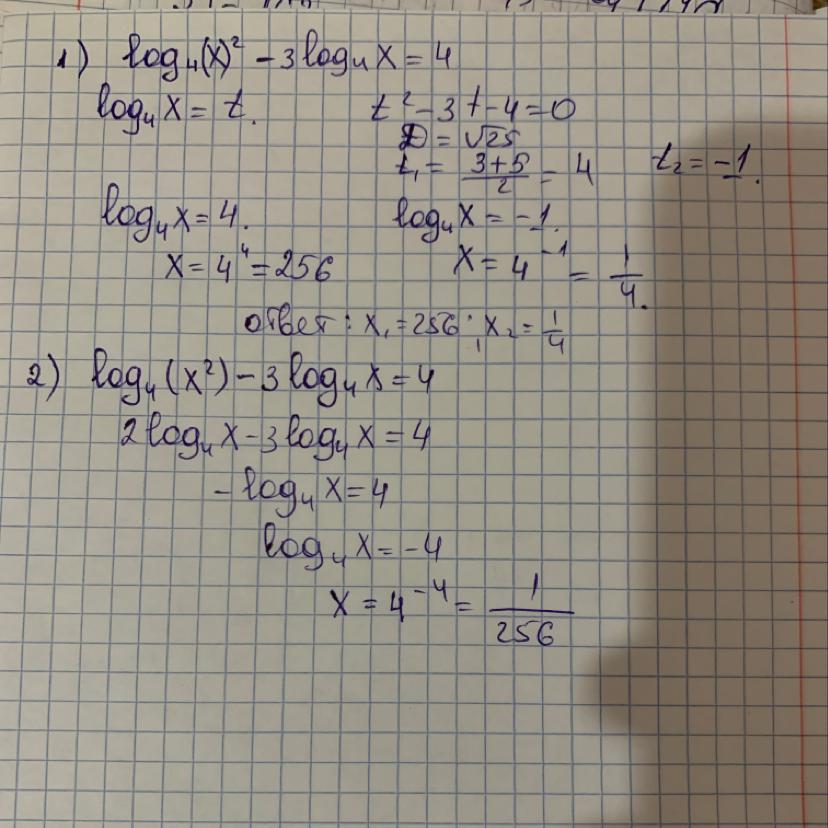 1) log₄(x)² − 3log₄x = 4
log₄x = t. t² − 3t − 4 = 0
D = √25
t₁ = (3+5)/2 = 4 t₂ = −1.
log₄x = 4. log₄x = −1.
x = 4⁴ = 256 x = 4⁻¹ = 1/4.
ответ: x₁ = 256; x₂ = 1/4
2) log₄(x²) − 3log₄x = 4
2log₄x − 3log₄x = 4
− log₄x = 4
log₄x = −4
x = 4⁻⁴ = 1/256